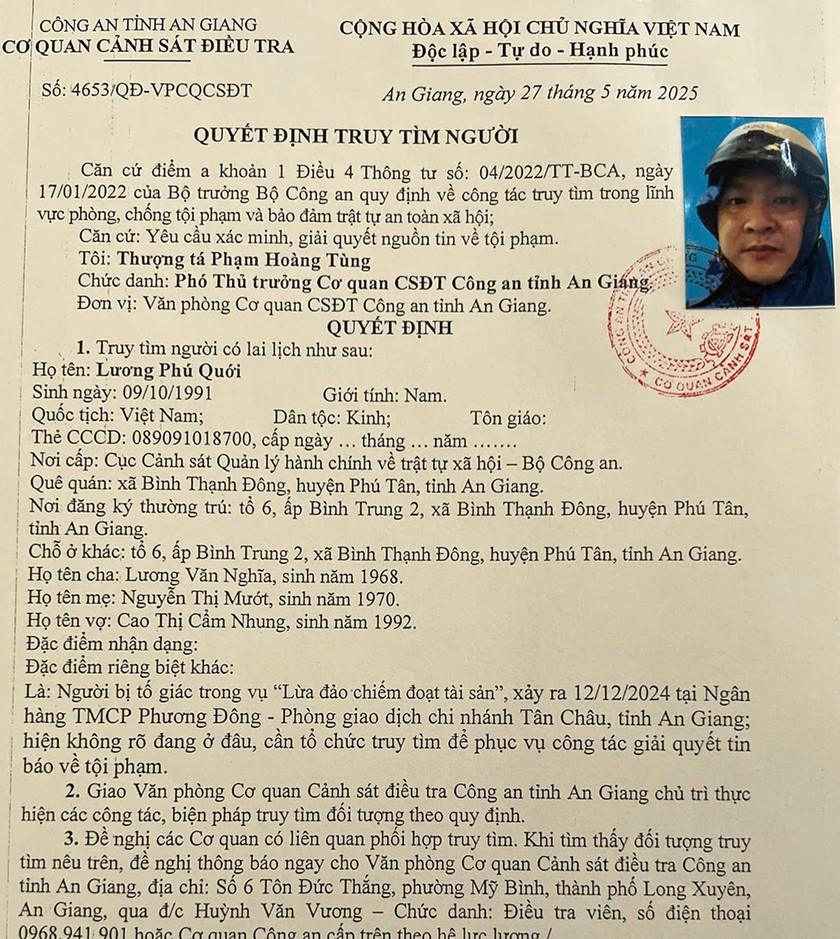 CÔNG AN TỈNH AN GIANG
CƠ QUAN CẢNH SÁT ĐIỀU TRA
CỘNG HÒA XÃ HỘI CHỦ NGHĨA VIỆT NAM
Độc lập - Tự do - Hạnh phúc
Số: 4653/QĐ-VPCQCSĐT
An Giang, ngày 27 tháng 5 năm 2025
QUYẾT ĐỊNH TRUY TÌM NGƯỜI
Căn cứ điểm a khoản 1 Điều 4 Thông tư số: 04/2022/TT-BCA, ngày
17/01/2022 của Bộ trưởng Bộ Công an quy định về công tác truy tìm trong lĩnh
vực phòng, chống tội phạm và bảo đảm trật tự an toàn xã hội;
Căn cứ: Yêu cầu xác minh, giải quyết nguồn tin về tội phạm.
Tôi: Thượng tá Phạm Hoàng Tùng
Chức danh: Phó Thủ trưởng Cơ quan CSĐT Công an tỉnh An Giang.
Đơn vị: Văn phòng Cơ quan CSĐT Công an tỉnh An Giang.
QUYẾT ĐỊNH
1. Truy tìm người có lai lịch như sau:
Họ tên: Lương Phú Quới
Sinh ngày: 09/10/1991 Giới tính: Nam.
Quốc tịch: Việt Nam; Dân tộc: Kinh; Tôn giáo:
Thẻ CCCD: 089091018700, cấp ngày … tháng … năm …….
Nơi cấp: Cục Cảnh sát Quản lý hành chính về trật tự xã hội – Bộ Công an.
Quê quán: xã Bình Thạnh Đông, huyện Phú Tân, tỉnh An Giang.
Nơi đăng ký thường trú: tổ 6, ấp Bình Trung 2, xã Bình Thạnh Đông, huyện Phú Tân,
tỉnh An Giang.
Chỗ ở khác: tổ 6, ấp Bình Trung 2, xã Bình Thạnh Đông, huyện Phú Tân, tỉnh An Giang.
Họ tên cha: Lương Văn Nghĩa, sinh năm 1968.
Họ tên mẹ: Nguyễn Thị Mướt, sinh năm 1970.
Họ tên vợ: Cao Thị Cẩm Nhung, sinh năm 1992.
Đặc điểm nhận dạng:
Đặc điểm riêng biệt khác:
Là: Người bị tố giác trong vụ “Lừa đảo chiếm đoạt tài sản”, xảy ra 12/12/2024 tại Ngân
hàng TMCP Phương Đông - Phòng giao dịch chi nhánh Tân Châu, tỉnh An Giang;
hiện không rõ đang ở đâu, cần tổ chức truy tìm để phục vụ công tác giải quyết tin
báo về tội phạm.
2. Giao Văn phòng Cơ quan Cảnh sát điều tra Công an tỉnh An Giang chủ trì thực
hiện các công tác, biện pháp truy tìm đối tượng theo quy định.
3. Đề nghị các Cơ quan có liên quan phối hợp truy tìm. Khi tìm thấy đối tượng truy
tìm nêu trên, đề nghị thông báo ngay cho Văn phòng Cơ quan Cảnh sát điều tra Công an
tỉnh An Giang, địa chỉ: Số 6 Tôn Đức Thắng, phường Mỹ Bình, thành phố Long Xuyên,
An Giang, qua đ/c Huỳnh Văn Vương – Chức danh: Điều tra viên, số điện thoại
0968.941.901 hoặc Cơ quan Công an cấp trên theo hệ lực lượng./.